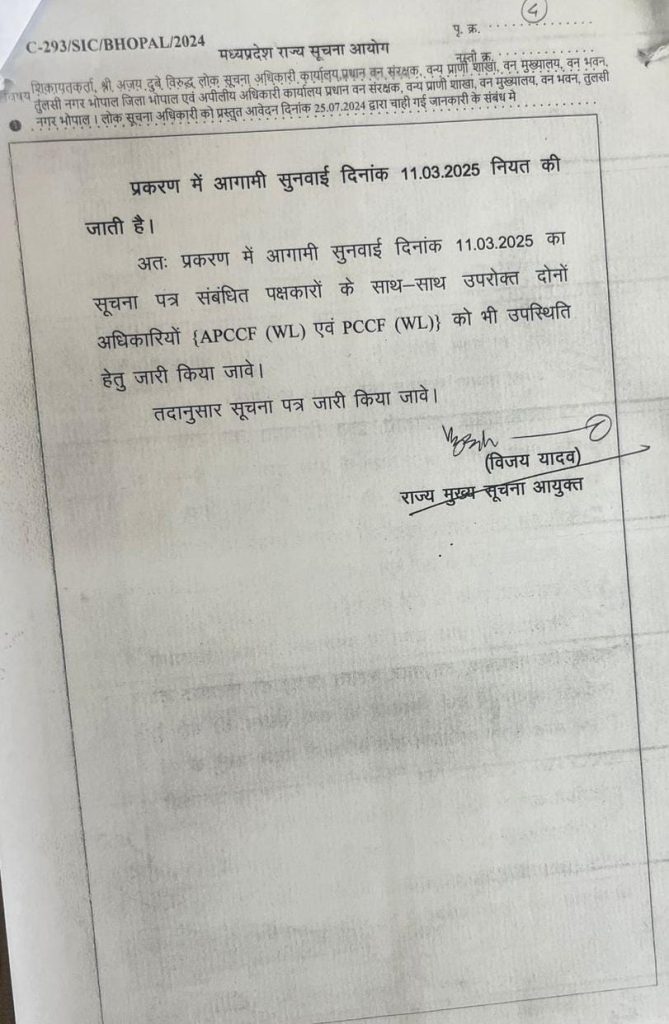 4
C-293/SIC/BHOPAL/2024
पृ. क्र.
मध्यप्रदेश राज्य सूचना आयोग
नस्ती क्र.
विषय शिकायतकर्ता, श्री अजय दुबे विरुद्ध लोक सूचना अधिकारी कार्यालय प्रधान वन संरक्षक, वन्य प्राणी शाखा, वन मुख्यालय, वन भवन,
तुलसी नगर भोपाल जिला भोपाल एवं अपीलीय अधिकारी कार्यालय प्रधान वन संरक्षक, वन्य प्राणी शाखा, वन मुख्यालय, वन भवन, तुलसी
नगर भोपाल । लोक सूचना अधिकारी को प्रस्तुत आवेदन दिनांक 25.07.2024 द्वारा चाही गई जानकारी के संबंध मे
प्रकरण में आगामी सुनवाई दिनांक 11.03.2025 नियत की
जाती है।
अतः प्रकरण में आगामी सुनवाई दिनांक 11.03.2025 का
सूचना पत्र संबंधित पक्षकारों के साथ–साथ उपरोक्त दोनों
अधिकारियों {APCCF (WL) एवं PCCF (WL)} को भी उपस्थिति
हेतु जारी किया जावे।
तदानुसार सूचना पत्र जारी किया जावे।
(विजय यादव)
राज्य मुख्य सूचना आयुक्त